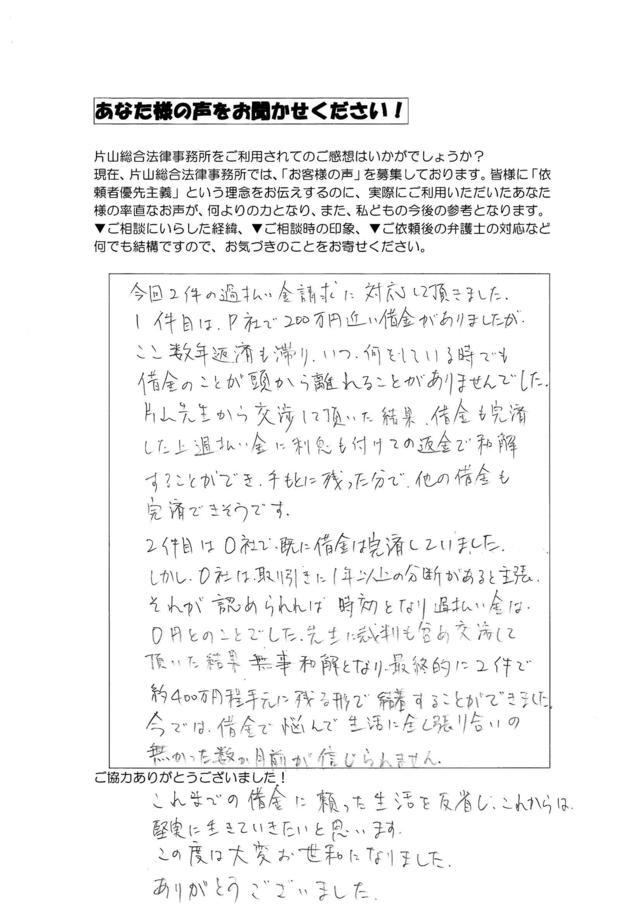 あなた様の声をお聞かせください！
片山総合法律事務所をご利用されてのご感想はいかがでしょうか？
現在、片山総合法律事務所では、「お客様の声」を募集しております。皆様に「依
頼者優先主義」という理念をお伝えするのに、実際にご利用いただいたあなた
様の率直なお声が、何よりの力となり、また、私どもの今後の参考となります。
▼ご相談にいらした経緯、▼ご相談時の印象、▼ご依頼後の弁護士の対応など
何でも結構ですので、お気づきのことをお寄せください。
今回2件の過払い金請求に対応して頂きました。
1件目は、P社で200万円近い借金がありましたが、
ここ数年返済も滞り、いつ、何をしている時でも
借金のことが頭から離れることがありませんでした。
片山先生から交渉して頂いた結果、借金も完済
した上過払い金に利息も付けての返金で和解
することができ、手もとに残った分で、他の借金も
完済できそうです。
2件目はO社で、既に借金は完済していました。
しかし、O社は、取引きに1年以上の分断があると主張、
それが認められれば時効となり過払い金は、
0円とのことでした。先生に裁判も含め交渉して
頂いた結果無事和解となり、最終的に2件で
約400万円程手元に残る形で結着することができました。
今では、借金で悩んで生活に全く張り合いの
無かった数か月前が信じられません。
ご協力ありがとうございました！
これまでの借金に頼った生活を反省し、これからは、
堅実に生きていきたいと思います。
この度は大変お世和になりました。
ありがとうございました。